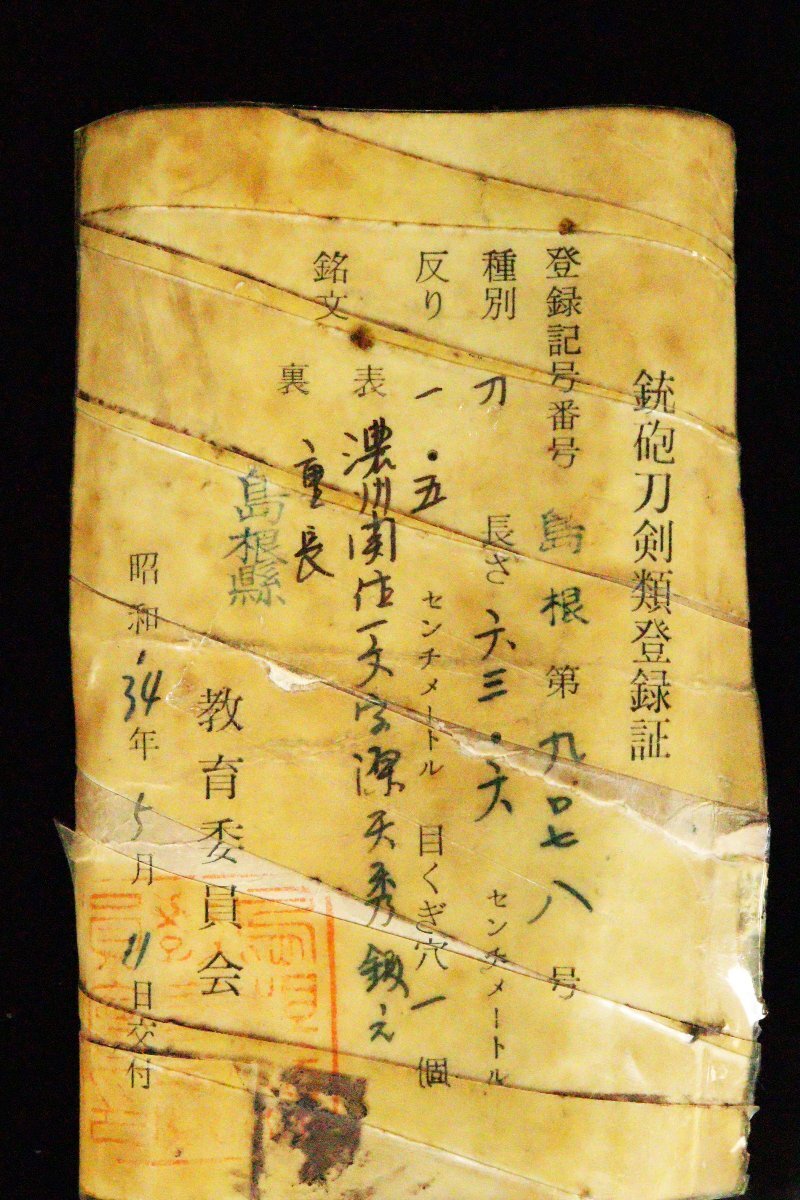 銃砲刀剣類登録証
登録記号番号 島根 第 九〇七八 号
種別 刀 長さ 六三・六 センチメートル
反り 一・五 センチメートル 目くぎ穴 一 個
銘文 表 濃州関住一文字源天秀鍛之
裏 重長
島根縣 教育委員会
昭和34年5月11日交付